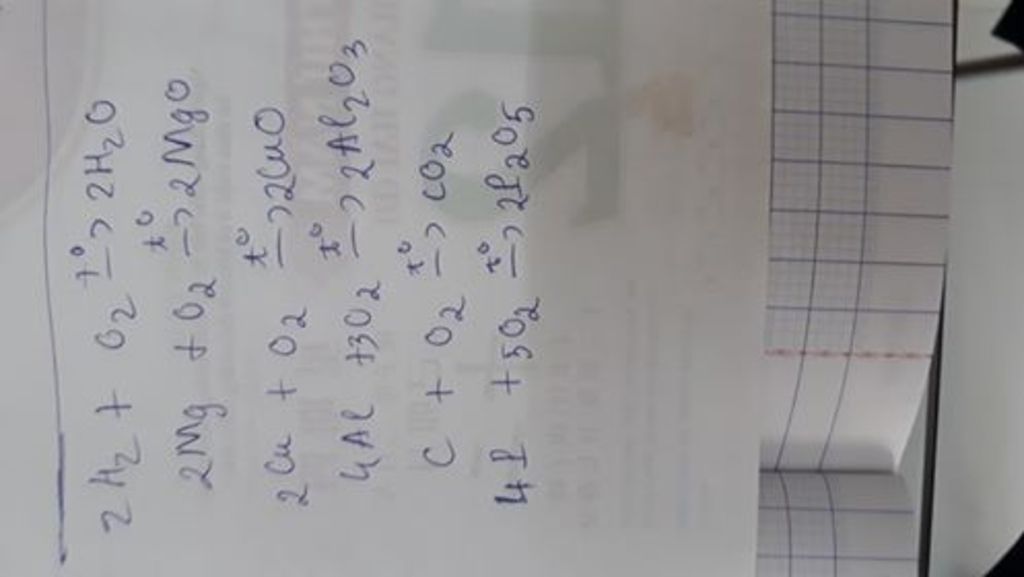 2H₂ + O₂ t°→ 2H₂O
2Mg + O₂ t°→ 2MgO
2Cu + O₂ t°→ 2CuO
4Al + 3O₂ t°→ 2Al₂O₃
C + O₂ t°→ CO₂
4P + 5O₂ t°→ 2P₂O₅